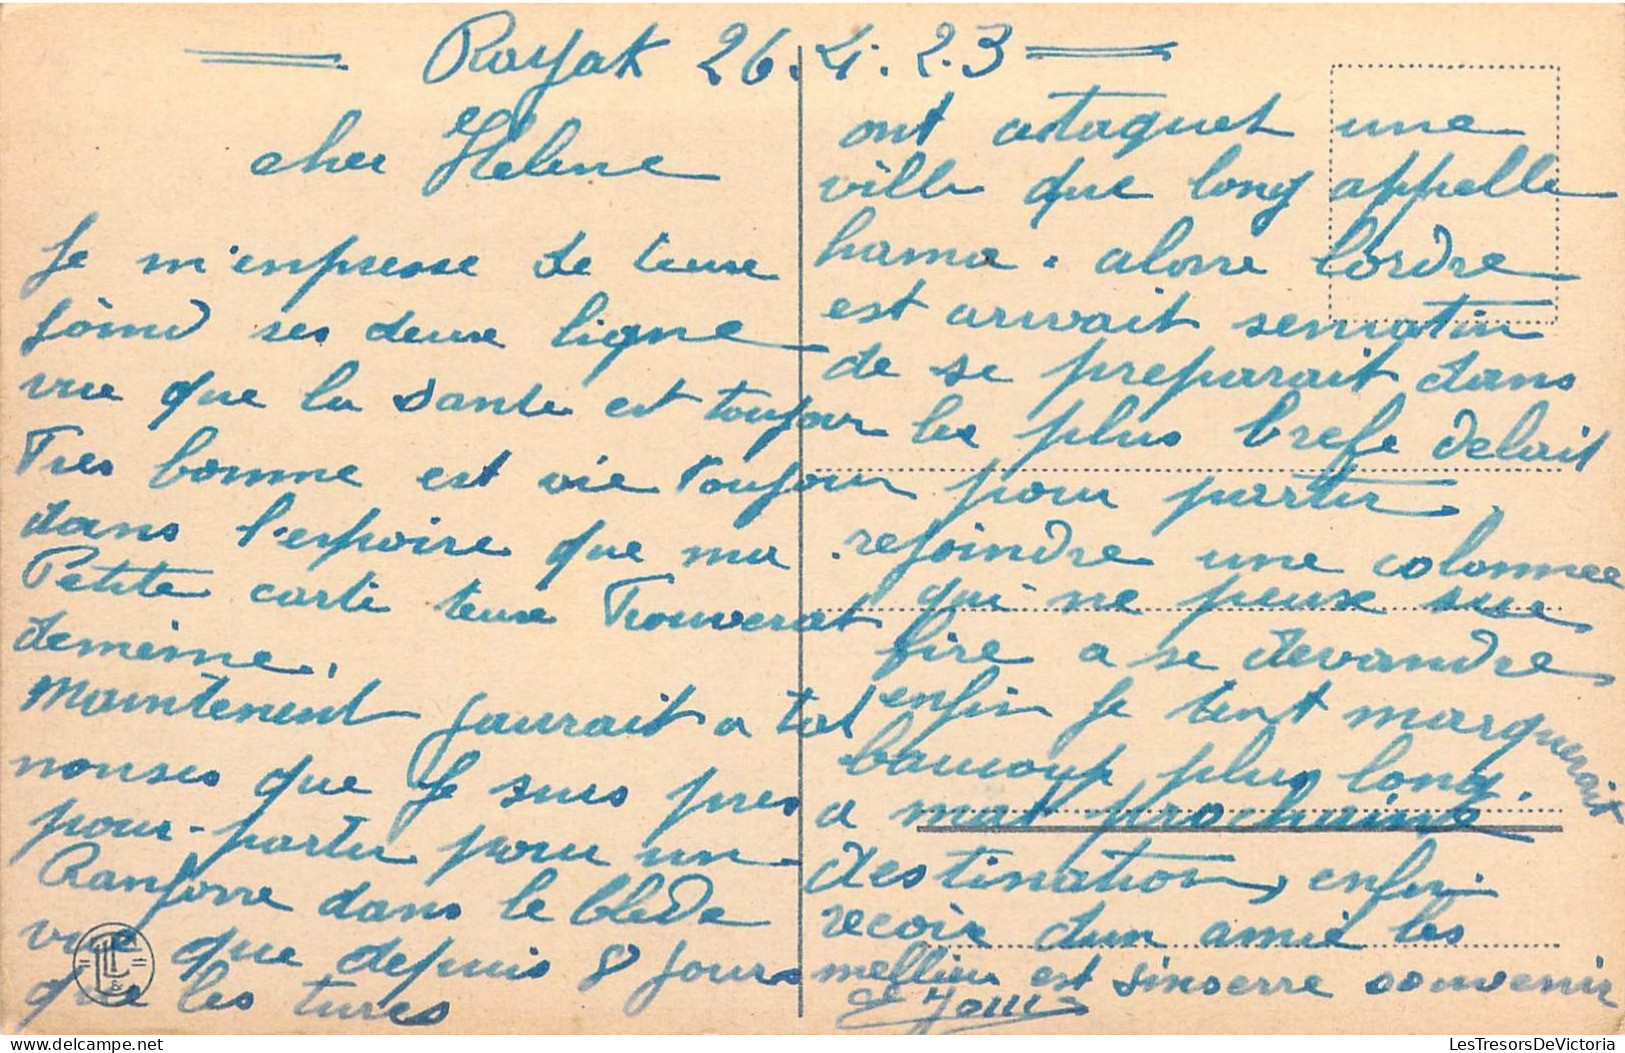 Rayak 26.4.23
cher Helene
Je m'enpresse de teux
joind ses deux ligne
vue que la sante est toujour
Tres bonne est vie toujour
dans l'espoire que ma
Petite carte teux Trouverat
dememe.
Maintenent jaurait a tat
nonses que je suis pres
pour partir pour un
Ranforre dans le blede
vue que depuis 8 jours
que les tures
ont ataquet une
ville que long appelle
hama. alorre lordre
est arrivait semratin
de se preparait dans
les plus brefe delait
pour partir.
rejoindre une colonnee
qui ne peux sue
fire a se devandre
enfin je tent marquerait
baucoup plus long.
a mat prochaine
destination, enfin
recoir dun amie les
mellieur est sinserre souvenir
LL
&
LesTresorsDeVictoria